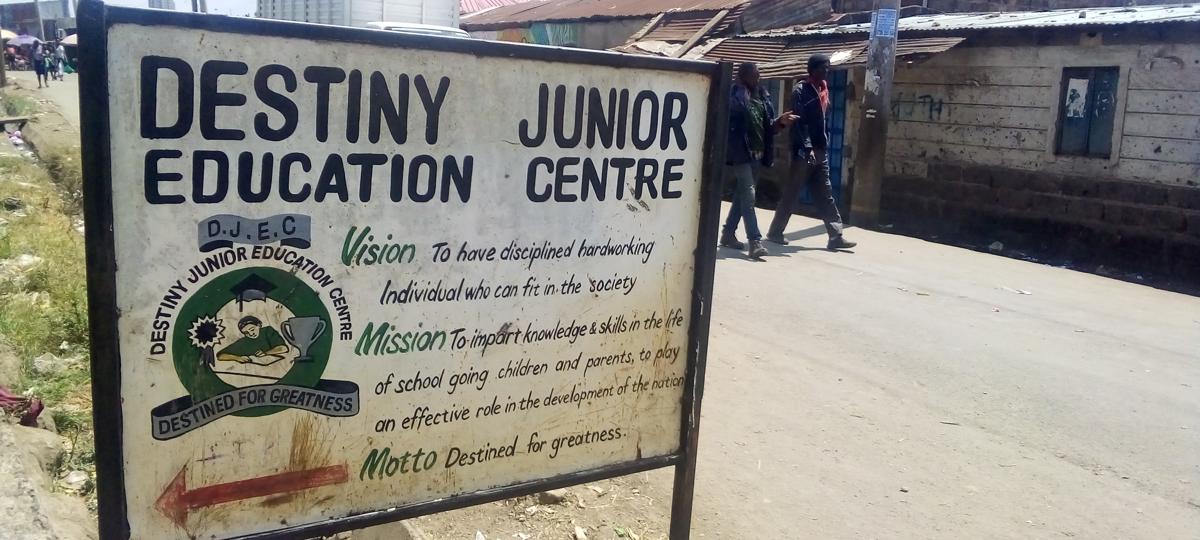 DESTINY JUNIOR
EDUCATION CENTRE
D.J.E.C
DESTINY JUNIOR EDUCATION CENTRE
DESTINED FOR GREATNESS
Vision To have disciplined hardworking
Individual who can fit in the society
Mission To impart knowledge & skills in the life
of school going children and parents, to play
an effective role in the development of the nation
Motto Destined for greatness.